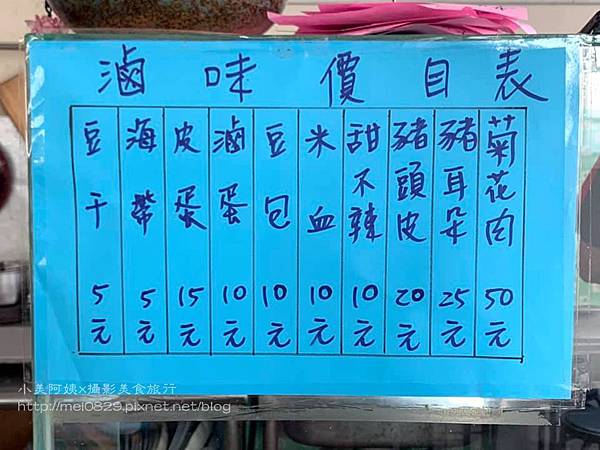 滷味價目表
豆干 5元
海帶 5元
皮蛋 15元
滷蛋 10元
豆包 10元
米血 10元
甜不辣 10元
豬頭皮 20元
豬耳朵 25元
菊花肉 50元
小美阿姨x攝影美食旅行
http://mei0829.pixnet.net/blog